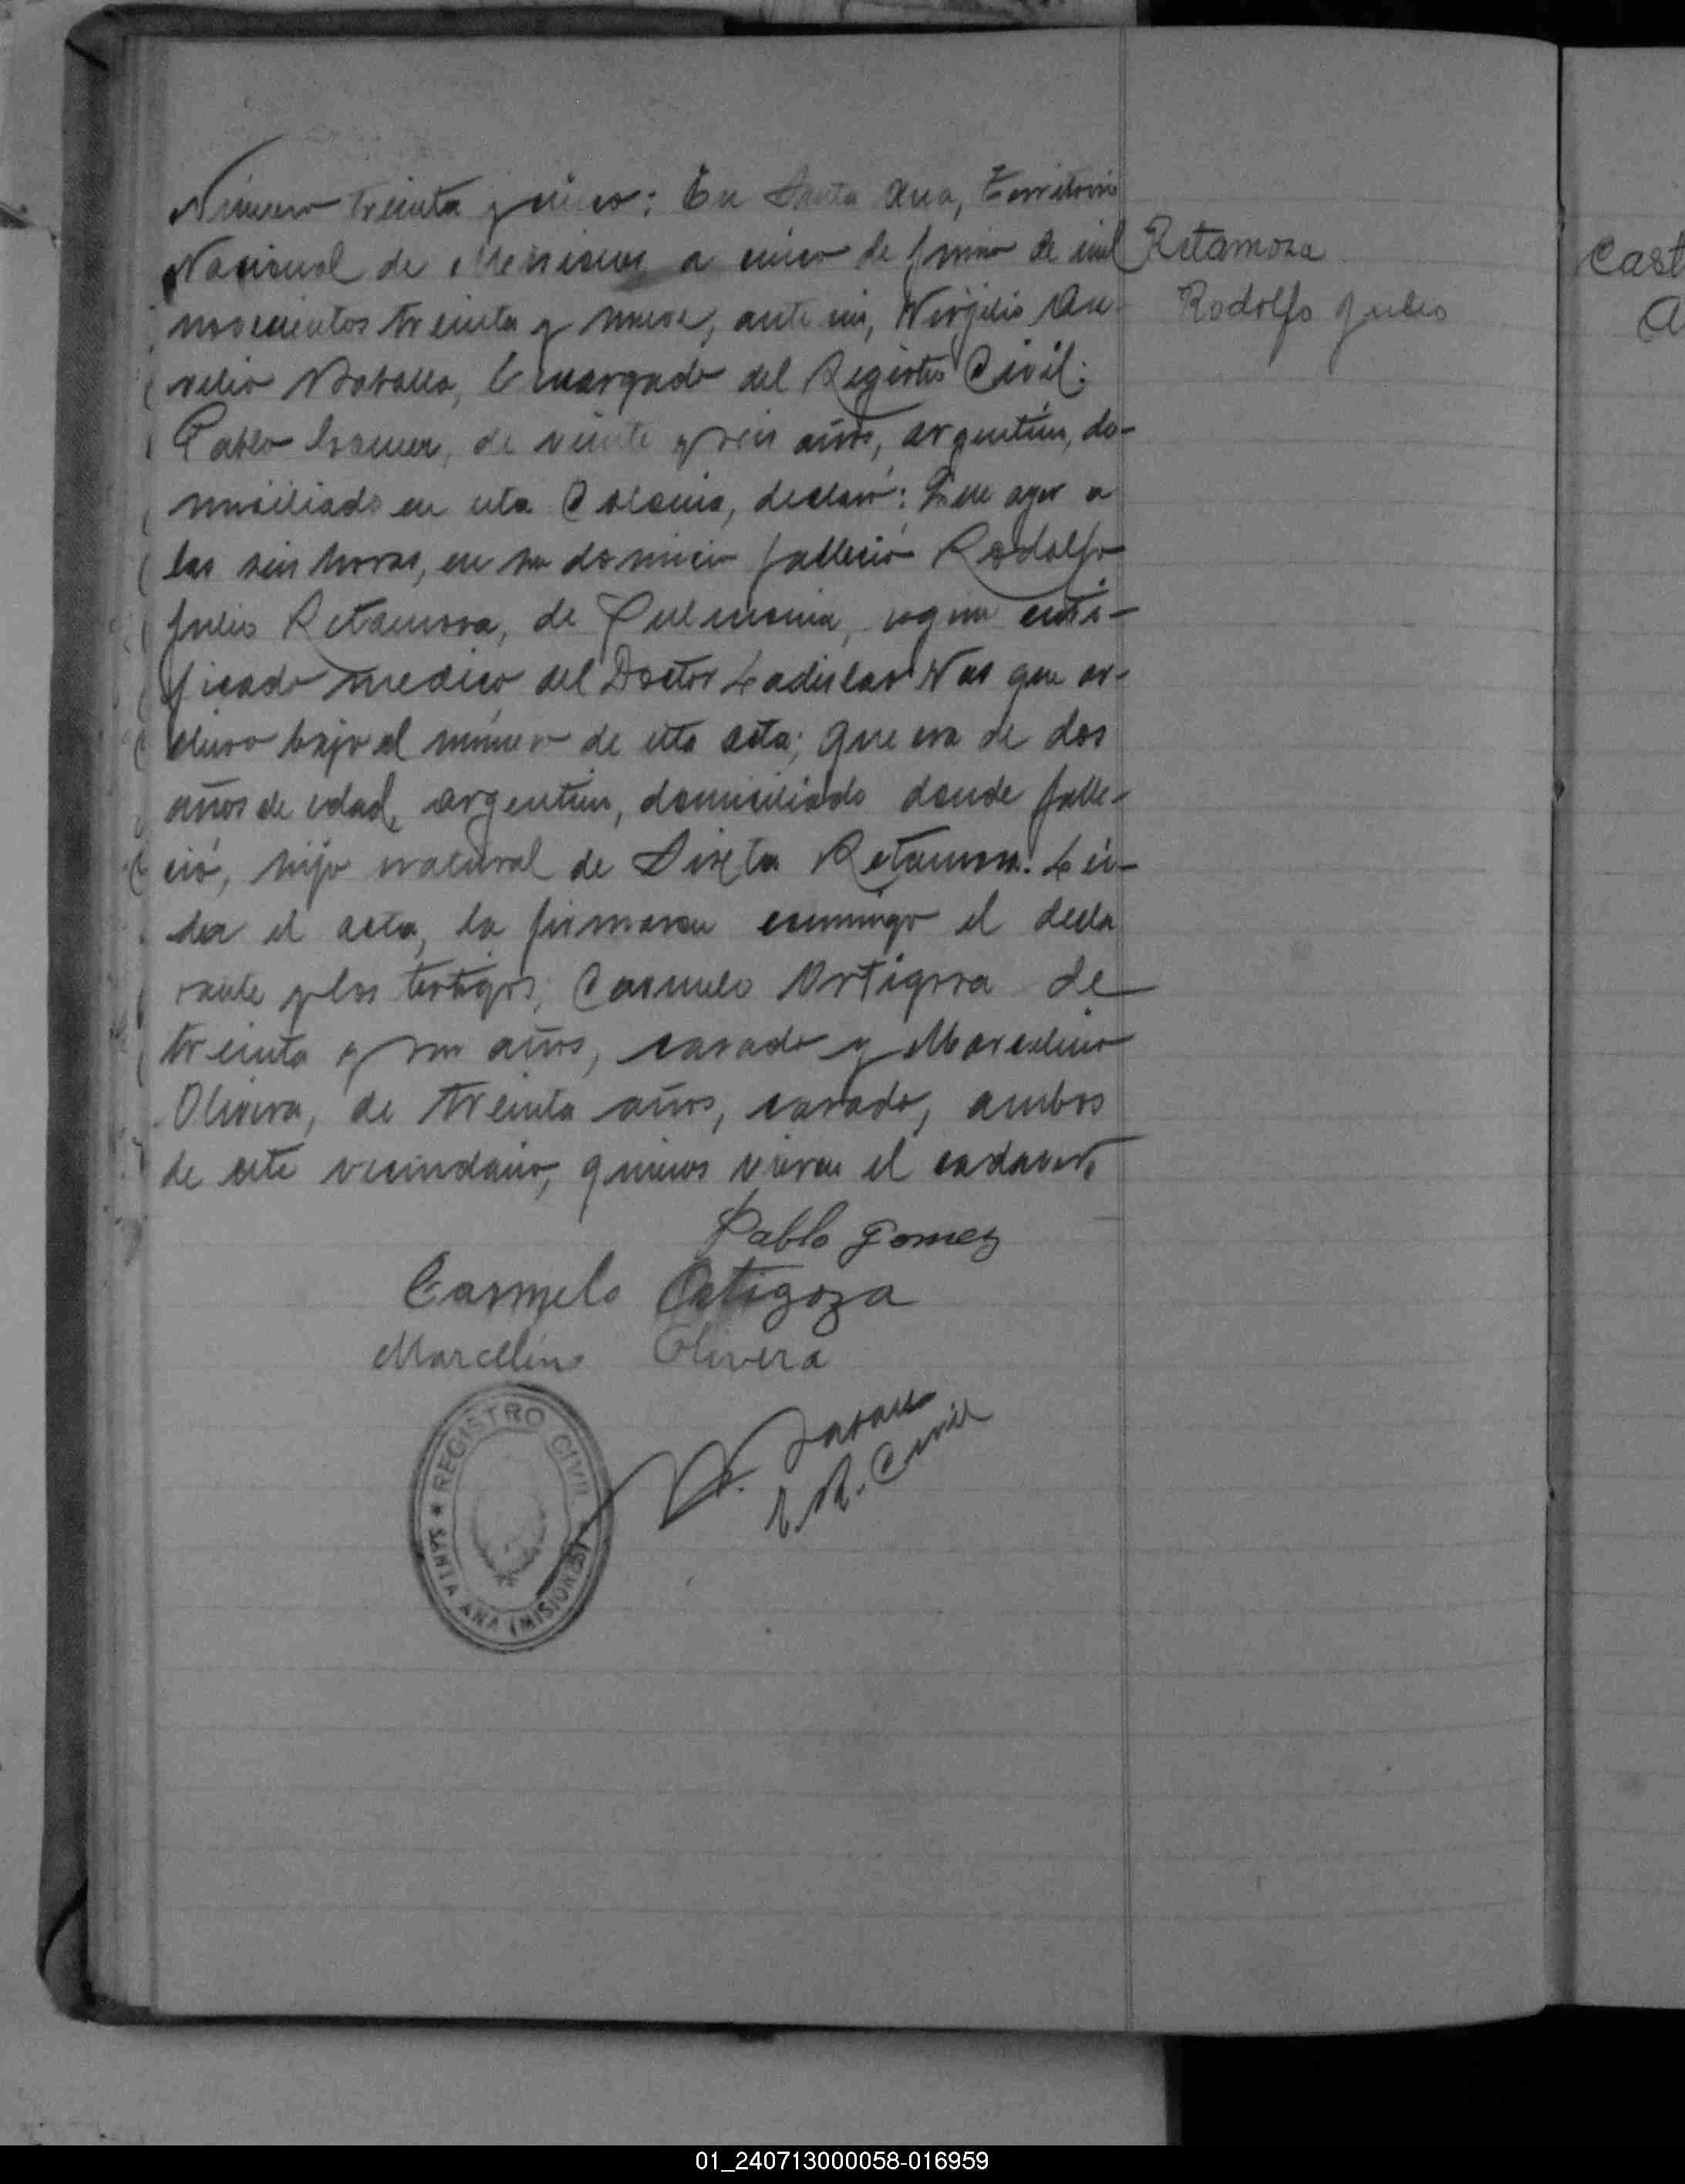 Número treinta y cinco: En Santa Ana, Territorio
Nacional de Misiones a cinco de junio de mil
novecientos treinta y nueve, ante mi, Virjilio Au-
relio, Encargado del Registro Civil:
Pablo Gomez, de veinte y seis años, argentino, do-
miciliado en esta Colonia, declaró: Que ayer a
las seis horas, en su domicio falleció Rodolfo
Julio Retamosa, de Pulmonia, segun certi-
ficado medico del Doctor Ladislao que ar-
chivo bajo el número de esta acta; que era de dos
años de edad, argentino, domiciliado donde falle-
ció, hijo natural de Sixta Retamosa. Lei-
da el acta, la firmaron conmigo el decla
rante y los testigos; Carmelo Ortigosa de
treinta y un años, casado y Marcelino
Olivera, de treinta años, casado, ambos
de este vecindario, quienes vieron el cadaver.
Retamoza
Rodolfo Julio
Pablo Gomez
Carmelo Ortigoza
Marcelino Olivera
E. R. Civil
★ REGISTRO CIVIL
SANTA ANA (MISIONES)
Cast
A
01_240713000058-016959